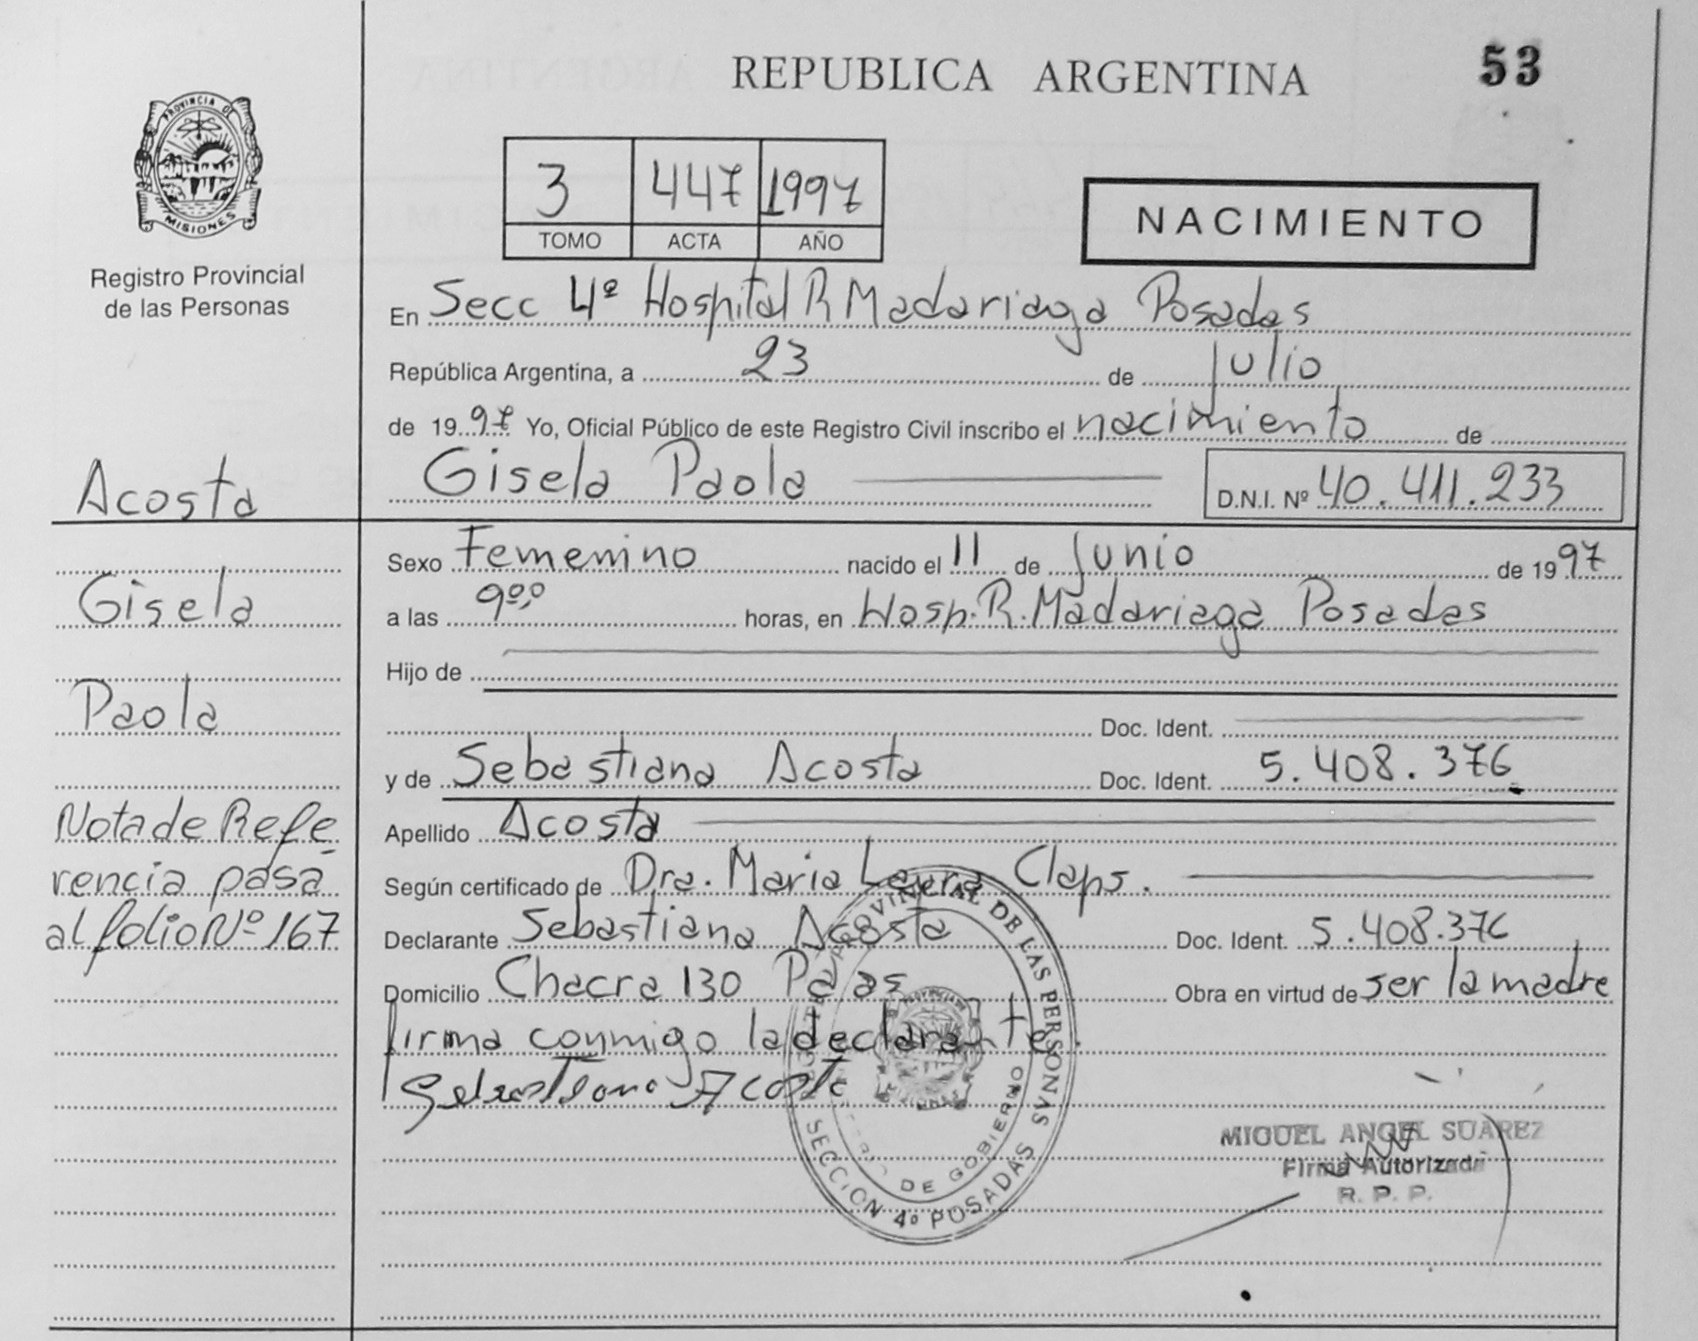 REPUBLICA ARGENTINA
53
PROVINCIA DE
MISIONES
Registro Provincial
de las Personas
3 447 1997
TOMO ACTA AÑO
NACIMIENTO
En Secc 4º Hospital R Madariaga Posadas
República Argentina, a 23 de Julio
de 19 97 Yo, Oficial Público de este Registro Civil inscribo el nacimiento de
Gisela Paola
D.N.I. Nº 40.411.233
Acosta
Gisela
Paola
Nota de Refe
rencia pasa
al folio Nº 167
Sexo Femenino nacido el 11 de Junio de 19 97
a las 9º,º horas, en Hosp. R. Madariaga Posadas
Hijo de
Doc. Ident.
y de Sebastiana Acosta Doc. Ident. 5.408.376
Apellido Acosta
Según certificado de Dra. Maria Laura Claps.
Declarante Sebastiana Acosta Doc. Ident. 5.408.376
Domicilio Chacra 130 Pdas Obra en virtud de ser la madre
firma conmigo la declarante.
Sebastiana Acosta
PROVINCIAL DE LAS PERSONAS
SECCION 4º POSADAS
DE GOBIERNO
MIGUEL ANGEL SUAREZ
Firma Autorizada
R. P. P.